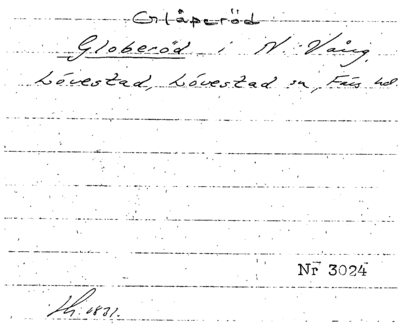 Glåperöd
Globeröd i N. Vång,
Lövestad, Lövestad sn, Färs hd.
Nr 3024
1831.